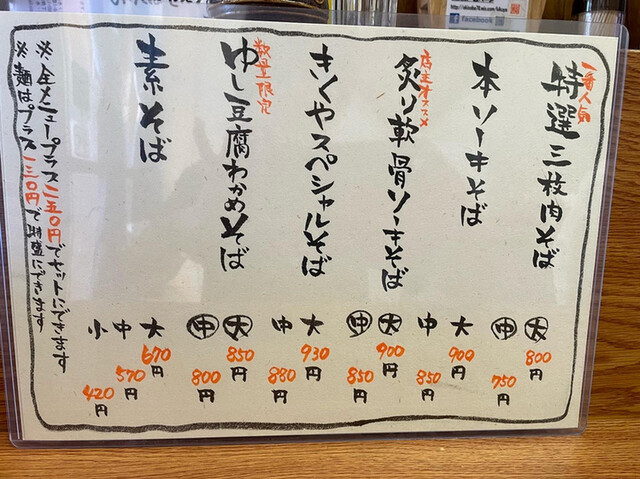 一番人気
特選三枚肉そば
大 800円
中 750円
本ソーキそば
大 900円
中 850円
店主オススメ
炙り軟骨ソーキそば
大 900円
中 850円
きくやスペシャルそば
大 930円
中 880円
数量限定
ゆし豆腐わかめそば
大 850円
中 800円
素そば
大 670円
中 570円
小 420円
※全メニュープラス二五〇円でセットにできます
※麺はプラス一三〇円で特盛にできます
facebook